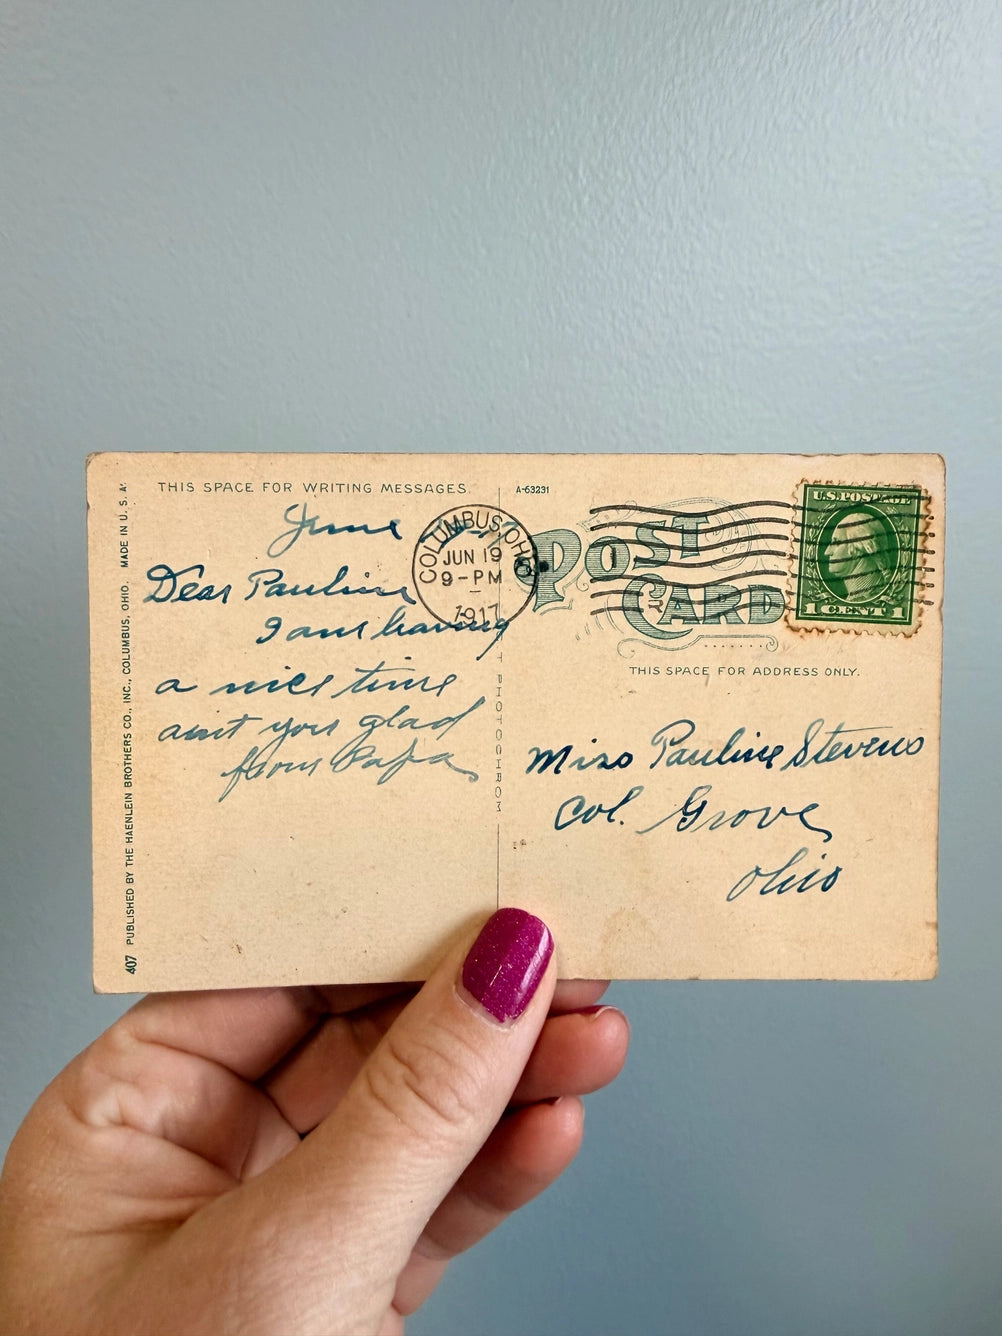 THIS SPACE FOR WRITING MESSAGES.
A-63231
June
Dear Pauline
I am having
a nice time
aint you glad
from Papa
COLUMBUS, OHIO
JUN 19
9-PM
1917
POST
CARD
U.S. POSTAGE
1 CENT 1
THIS SPACE FOR ADDRESS ONLY.
Miss Pauline Stevens
Col. Grove
Ohio
PHOTOCHROM
407 PUBLISHED BY THE HAENLEIN BROTHERS CO., INC., COLUMBUS, OHIO. MADE IN U. S. A.